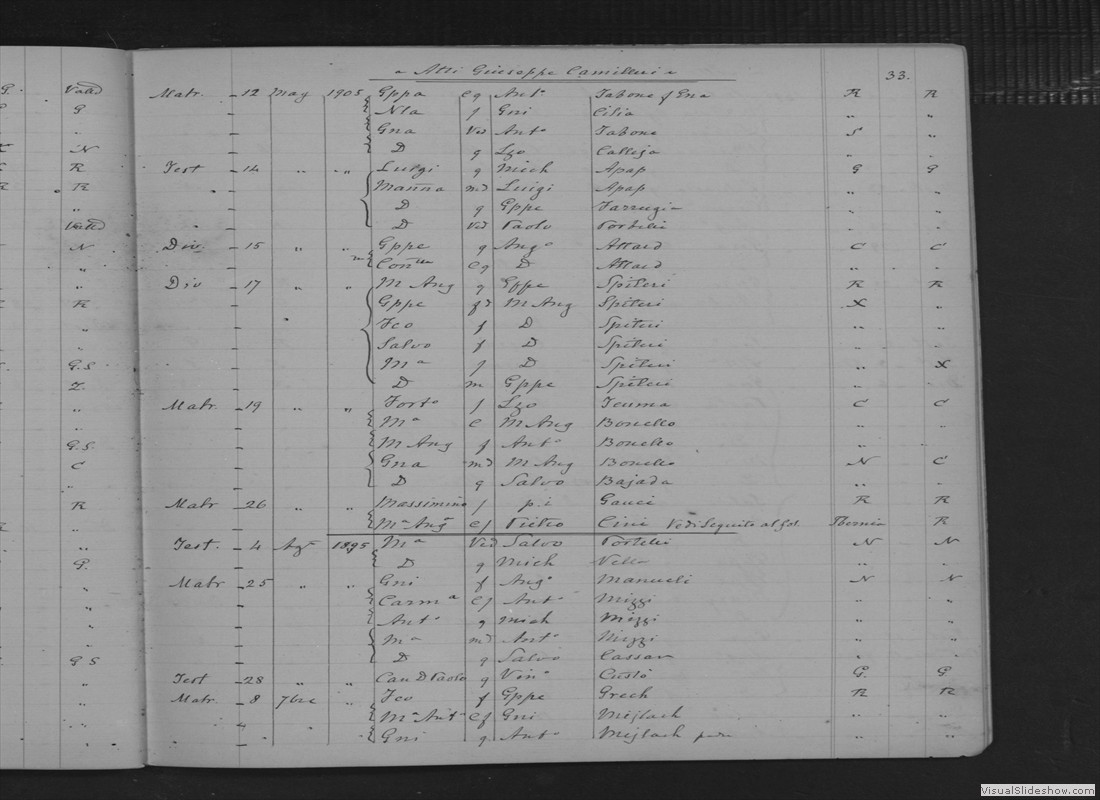 Atti Giuseppe Camilleri 33.
Matr. 12 May 1905 Gppa eq Anto Tabone f Gna R R
Nla f Gni Cilia " "
Gna Ved Anto Tabone S "
D q Lzo Calleja " "
Test 14 " " Luigi q Mich Apap G G
Marina md Luigi Apap " "
D q Gppe Farrugia " "
D Ved Paolo Portelli " "
Div. 15 " " Gppe q Ango Attard C C
eq D Attard " "
Div 17 " " M Ang q Gppe Spiteri R R
Gppe fd M Ang Spiteri X "
Fco f D Spiteri " "
Salvo f D Spiteri " "
Ma f D Spiteri " X
D m Gppe Spiteri " "
Matr. 19 " " Forto f Lzo Teuma C C
Ma e M Ang Bonello " "
M Ang f Anto Bonello " "
Gna md M Ang Bonello N C
D q Salvo Bajada " "
Matr 26 " " Massimino f p.i Gauci R R
Ma Anga ef Pietro Cini Vedi Seguito al fol R
Test. 4 1895 Ma Ved Salvo Portelli N N
D q Mich Vella " "
Matr 25 " " Gni f Ango Manueli N N
Carma ef Anto Mizzi " "
Anto q Mich Mizzi " "
Ma md Anto Mizzi " "
D q Salvo Cassar " "
Test 28 " " Can D Paolo q Vino Custó G. G
Matr. 8 7bre " Fco f Gppe Grech R R
Ma Anta ef Gni Mijlach " "
Gni q Anto Mijlach " "
Valld
G
N
R
R
"
Valld
N
"
R
"
"
G.S
Z.
"
G.S.
C
"
R
"
G.
"
G S
VisualSlideshow.com